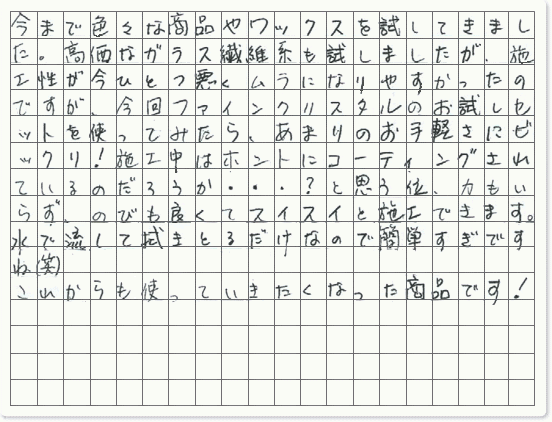 今まで色々な商品やワックスを試してきまし
た。高価なガラス繊維系も試しましたが、施
工性が今ひとつ悪くムラになりやすかったの
ですが、今回ファインクリスタルのお試しセ
ットを使ってみたら、あまりのお手軽さにビ
ックリ！施工中はホントにコーティングされ
ているのだろうか・・・？と思う位、力もい
らず、のびも良くてスイスイと施工できます。
水で流して拭きとるだけなので簡単すぎです
ね(笑)
これからも使っていきたくなった商品です！